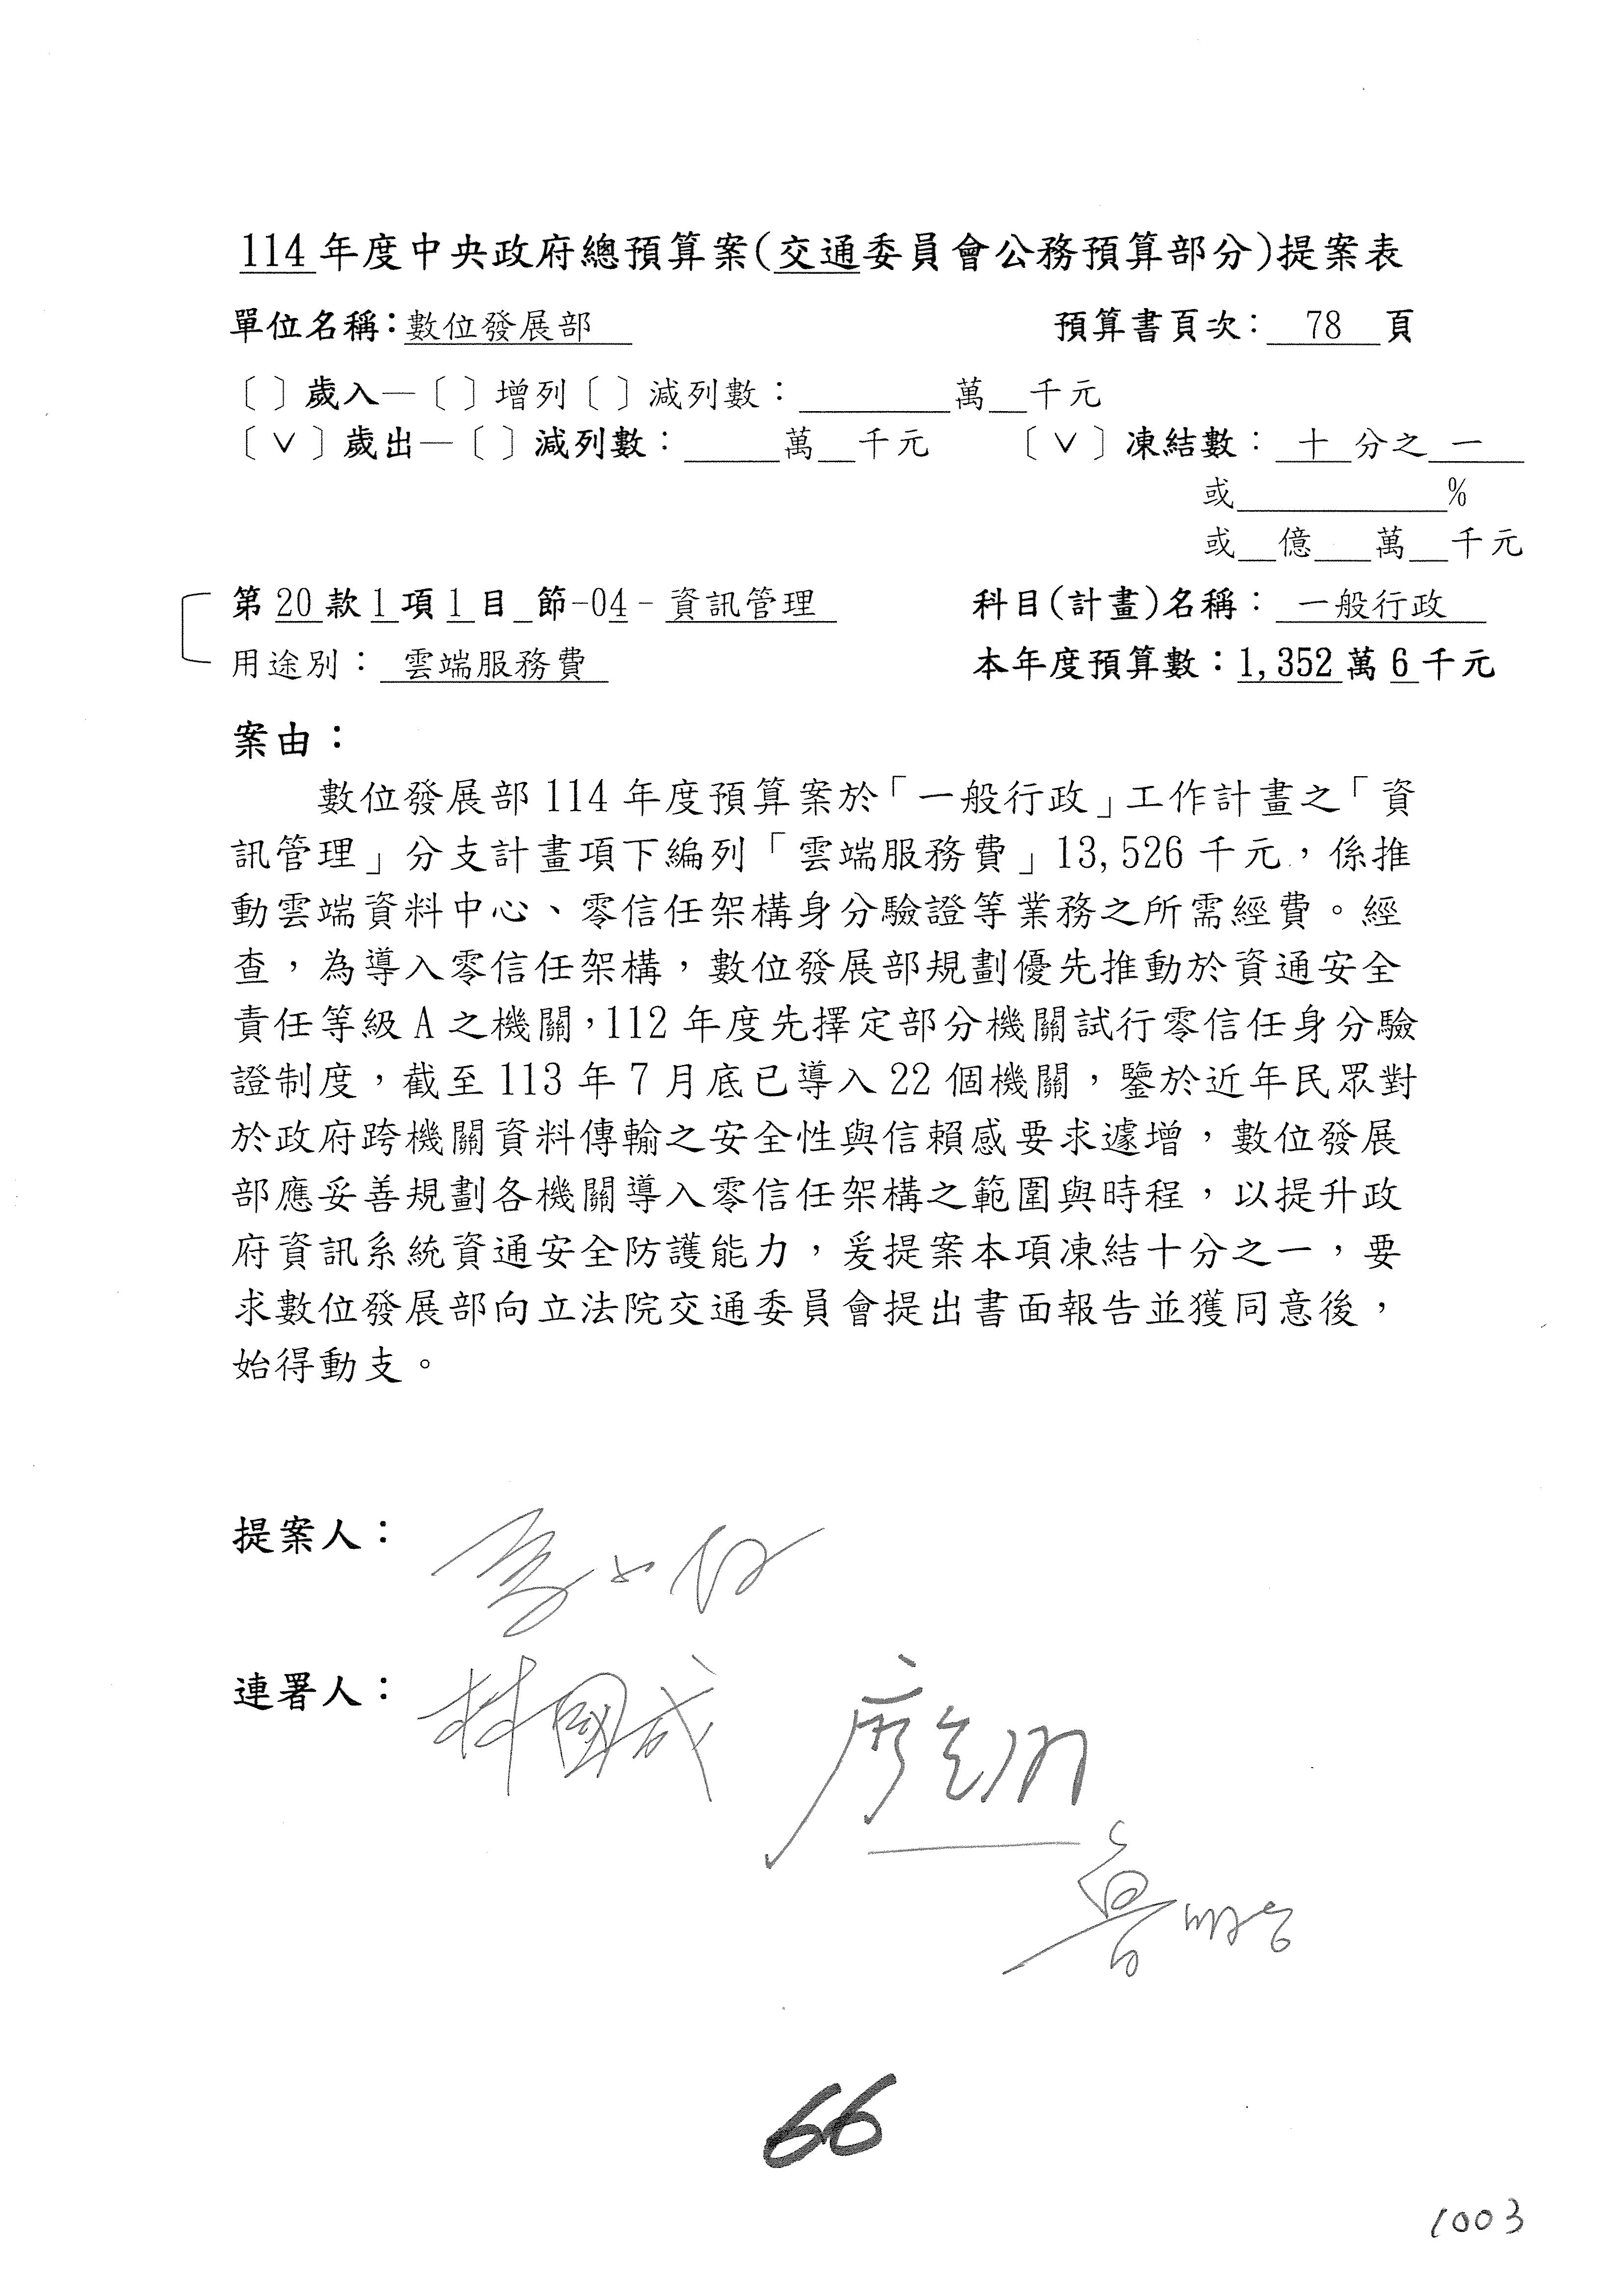 114年度中央政府總預算案(交通委員會公務預算部分)提案表
單位名稱：數位發展部 預算書頁次：78 頁
〔 〕歲入—〔 〕增列〔 〕減列數：____萬__千元
〔∨〕歲出—〔 〕減列數：____萬__千元 〔∨〕凍結數：十 分之 一
或____%
或__億__萬__千元
第20款1項1目_節-04-資訊管理 科目(計畫)名稱：一般行政
用途別：雲端服務費 本年度預算數：1,352萬6千元
案由：
數位發展部114年度預算案於「一般行政」工作計畫之「資
訊管理」分支計畫項下編列「雲端服務費」13,526千元，係推
動雲端資料中心、零信任架構身分驗證等業務之所需經費。經
查，為導入零信任架構，數位發展部規劃優先推動於資通安全
責任等級A之機關，112年度先擇定部分機關試行零信任身分驗
證制度，截至113年7月底已導入22個機關，鑒於近年民眾對
於政府跨機關資料傳輸之安全性與信賴感要求遽增，數位發展
部應妥善規劃各機關導入零信任架構之範圍與時程，以提升政
府資訊系統資通安全防護能力，爰提案本項凍結十分之一，要
求數位發展部向立法院交通委員會提出書面報告並獲同意後，
始得動支。
提案人：
連署人：林國成
66
1003